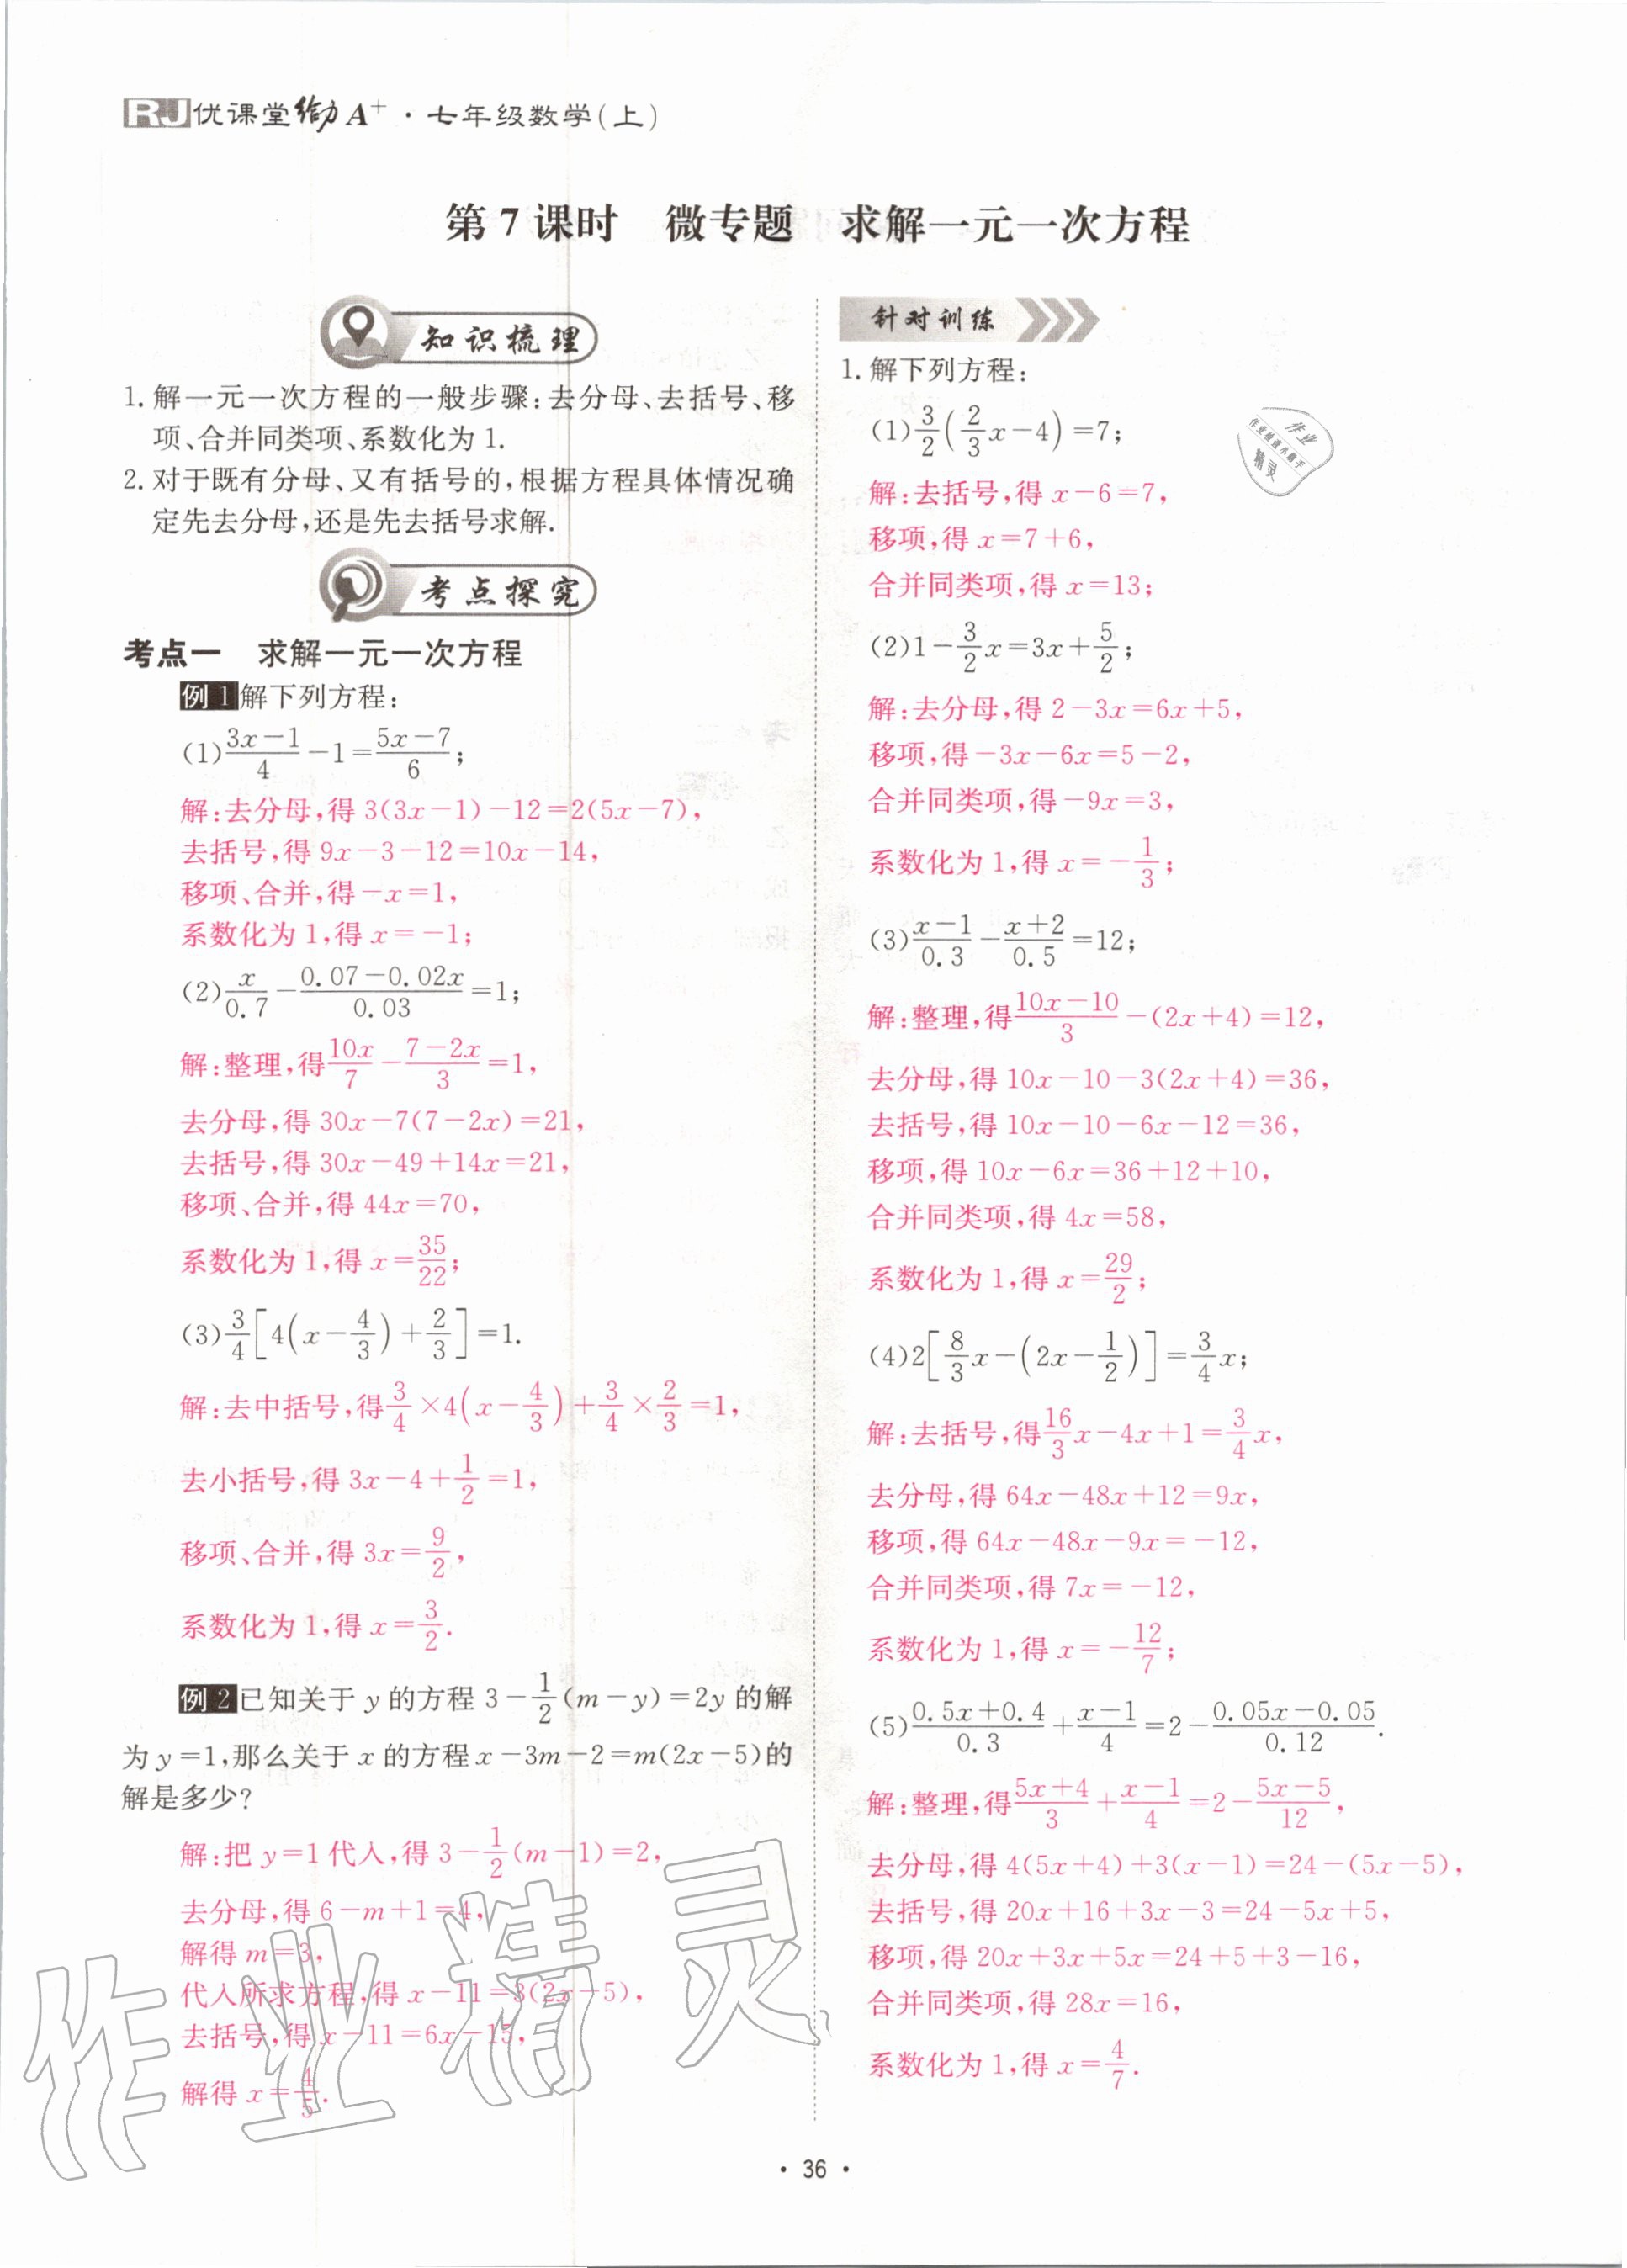 RJ优课堂给力A⁺·七年级数学(上)
第7课时 微专题 求解一元一次方程
知识梳理
1. 解一元一次方程的一般步骤:去分母、去括号、移
项、合并同类项、系数化为1.
2. 对于既有分母、又有括号的,根据方程具体情况确
定先去分母,还是先去括号求解.
考点探究
考点一 求解一元一次方程
例1 解下列方程:
(1)(3x-1)/4-1=(5x-7)/6;
解:去分母,得3(3x-1)-12=2(5x-7),
去括号,得9x-3-12=10x-14,
移项、合并,得-x=1,
系数化为1,得x=-1;
(2)x/0.7-(0.07-0.02x)/0.03=1;
解:整理,得10x/7-(7-2x)/3=1,
去分母,得30x-7(7-2x)=21,
去括号,得30x-49+14x=21,
移项、合并,得44x=70,
系数化为1,得x=35/22;
(3)3/4[4(x-4/3)+2/3]=1.
解:去中括号,得3/4×4(x-4/3)+3/4×2/3=1,
去小括号,得3x-4+1/2=1,
移项、合并,得3x=9/2,
系数化为1,得x=3/2.
例2 已知关于y的方程3-1/2(m-y)=2y的解
为y=1,那么关于x的方程x-3m-2=m(2x-5)的
解是多少?
解:把y=1代入,得3-1/2(m-1)=2,
去分母,得6-m+1=4,
解得m=3,
代入所求方程,得x-11=3(2x-5),
去括号,得x-11=6x-15,
解得x=4/5.
针对训练
1. 解下列方程:
(1)3/2(2/3x-4)=7;
解:去括号,得x-6=7,
移项,得x=7+6,
合并同类项,得x=13;
(2)1-3/2x=3x+5/2;
解:去分母,得2-3x=6x+5,
移项,得-3x-6x=5-2,
合并同类项,得-9x=3,
系数化为1,得x=-1/3;
(3)(x-1)/0.3-(x+2)/0.5=12;
解:整理,得(10x-10)/3-(2x+4)=12,
去分母,得10x-10-3(2x+4)=36,
去括号,得10x-10-6x-12=36,
移项,得10x-6x=36+12+10,
合并同类项,得4x=58,
系数化为1,得x=29/2;
(4)2[8/3x-(2x-1/2)]=3/4x;
解:去括号,得16/3x-4x+1=3/4x,
去分母,得64x-48x+12=9x,
移项,得64x-48x-9x=-12,
合并同类项,得7x=-12,
系数化为1,得x=-12/7;
(5)(0.5x+0.4)/0.3+(x-1)/4=2-(0.05x-0.05)/0.12.
解:整理,得(5x+4)/3+(x-1)/4=2-(5x-5)/12,
去分母,得4(5x+4)+3(x-1)=24-(5x-5),
去括号,得20x+16+3x-3=24-5x+5,
移项,得20x+3x+5x=24+5+3-16,
合并同类项,得28x=16,
系数化为1,得x=4/7.
作业
作业检查小助手
精灵
作业精灵
· 36 ·